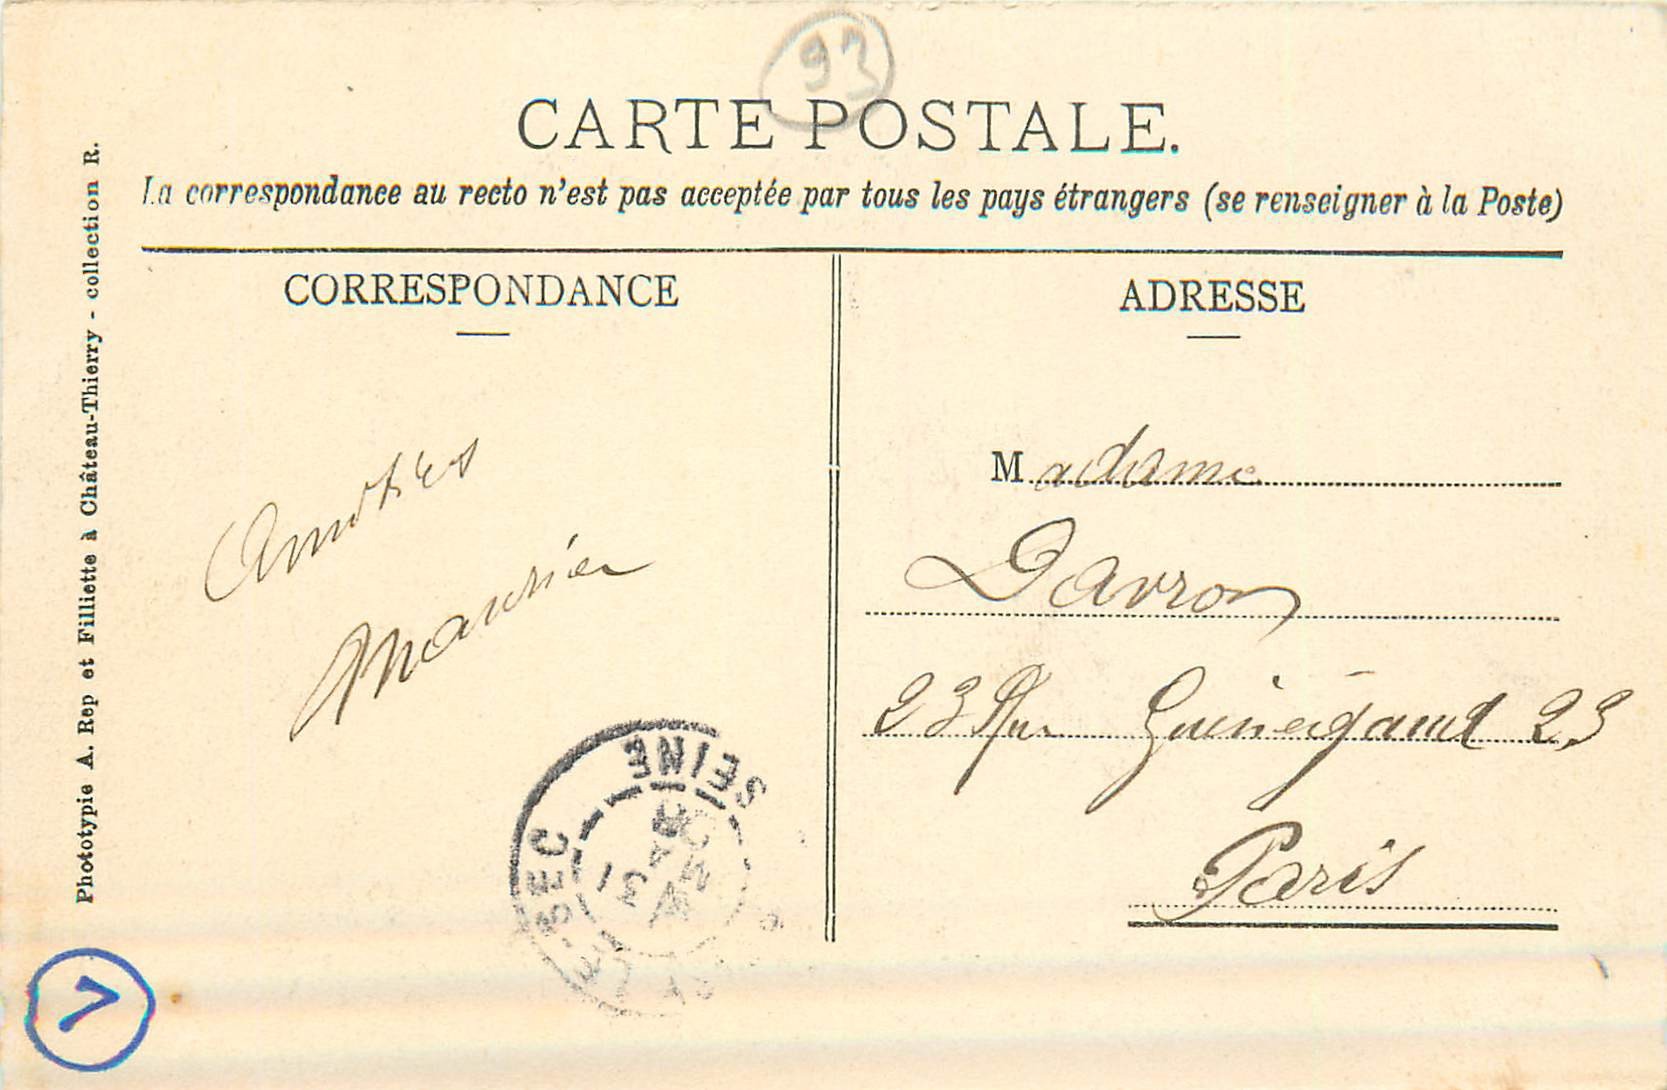 93
CARTE POSTALE.
La correspondance au recto n'est pas acceptée par tous les pays étrangers (se renseigner à la Poste)
CORRESPONDANCE
Amitiés
ADRESSE
Madame
Davron
23 Rue Guénégaud 23
Paris
Phototypie A. Rep et Filliette à Château-Thierry - collection R.
-SEC
SEINE
31